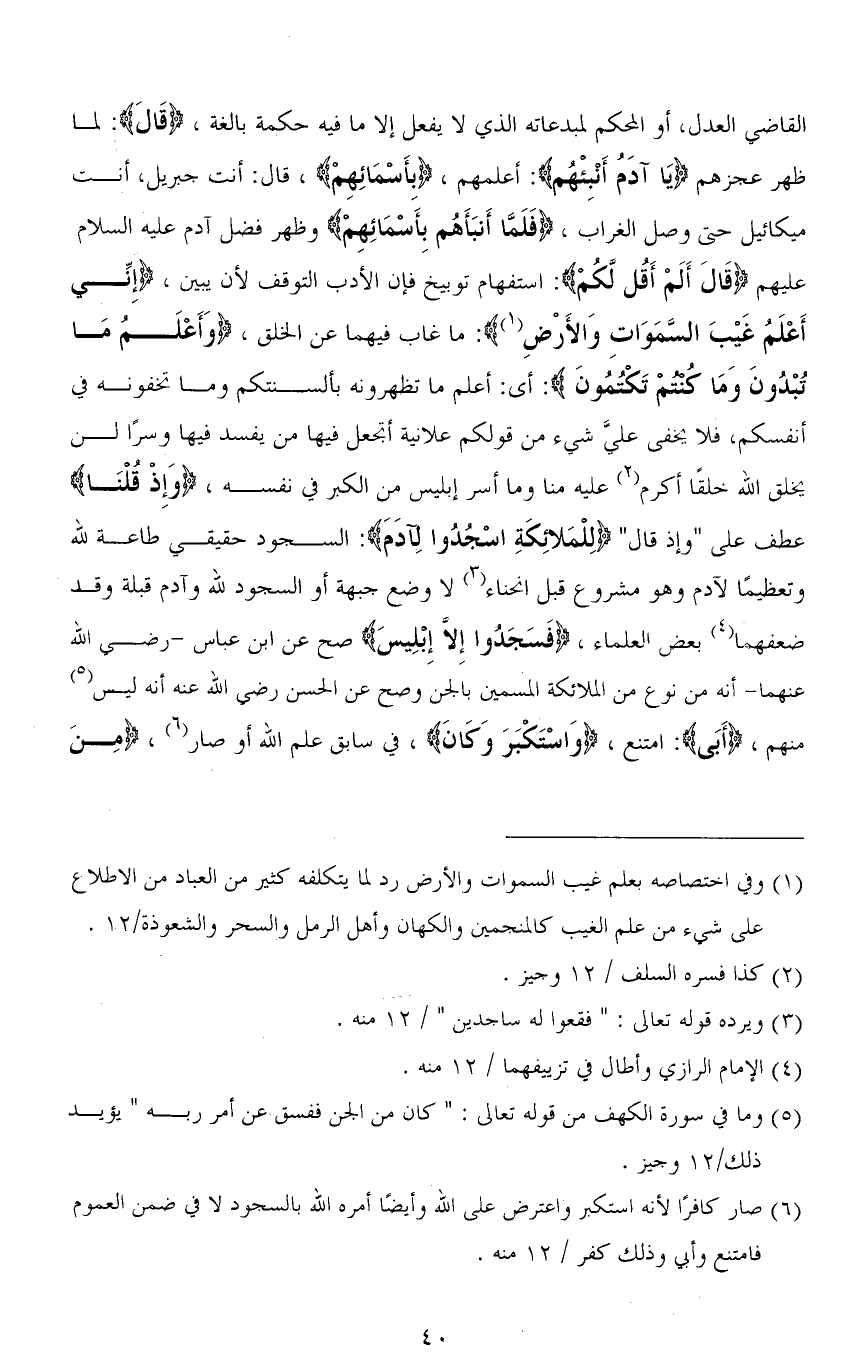 القاضي العدل، أو المحكم لمبدعاته الذي لا يفعل إلا ما فيه حكمة بالغة ، ﴿قَالَ﴾: لما
ظهر عجزهم ﴿يَا آدَمُ أَنْبِئْهُم﴾: أعلمهم ، ﴿بِأَسْمَائِهِمْ﴾ ، قال: أنت جبريل، أنت
ميكائيل حتى وصل الغراب ، ﴿فَلَمَّا أَنبَأَهُم بِأَسْمَائِهِمْ﴾ وظهر فضل آدم عليه السلام
عليهم ﴿قَالَ أَلَمْ أَقُل لَّكُمْ﴾: استفهام توبيخ فإن الأدب التوقف لأن يبين ، ﴿إِنِّي
أَعْلَمُ غَيْبَ السَّمَوَاتِ وَالأَرْضِ(١)﴾: ما غاب فيهما عن الخلق ، ﴿وَأَعْلَمُ مَا
تُبْدُونَ وَمَا كُنْتُمْ تَكْتُمُونَ ﴾: أى: أعلم ما تظهرونه بألسنتكم وما تخفونه في
أنفسكم، فلا يخفى عليَّ شيء من قولكم علانية أتجعل فيها من يفسد فيها وسرًا لن
يخلق الله خلقًا أكرم(٢) عليه منا وما أسر إبليس من الكبر في نفسه ، ﴿وَإِذْ قُلْنَا﴾
عطف على "وإذ قال" ﴿لِلْمَلائِكَةِ اسْجُدُوا لِآدَمَ﴾: السجود حقيقي طاعة لله
وتعظيمًا لآدم وهو مشروع قبل انحناء(٣) لا وضع جبهة أو السجود لله وآدم قبلة وقد
ضعفهما(٤) بعض العلماء ، ﴿فَسَجَدُوا إِلاَّ إِبْلِيسَ﴾ صح عن ابن عباس -رضي الله
عنهما- أنه من نوع من الملائكة المسمين بالجن وصح عن الحسن رضي الله عنه أنه ليس(٥)
منهم ، ﴿أَبَى﴾: امتنع ، ﴿وَاسْتَكْبَرَ وَكَانَ﴾ ، في سابق علم الله أو صار(٦) ، ﴿مِنَ
(١) وفي اختصاصه بعلم غيب السموات والأرض رد لما يتكلفه كثير من العباد من الاطلاع
على شيء من علم الغيب كالمنجمين والكهان وأهل الرمل والسحر والشعوذة/١٢ .
(٢) كذا فسره السلف / ١٢ وجيز .
(٣) ويرده قوله تعالى : " فقعوا له ساجدين " / ١٢ منه .
(٤) الإمام الرازي وأطال في تزييفهما / ١٢ منه .
(٥) وما في سورة الكهف من قوله تعالى : " كان من الجن ففسق عن أمر ربه " يؤيد
ذلك/١٢ وجيز .
(٦) صار كافرًا لأنه استكبر واعترض على الله وأيضًا أمره الله بالسجود لا في ضمن العموم
فامتنع وأبي وذلك كفر / ١٢ منه .
٤٠